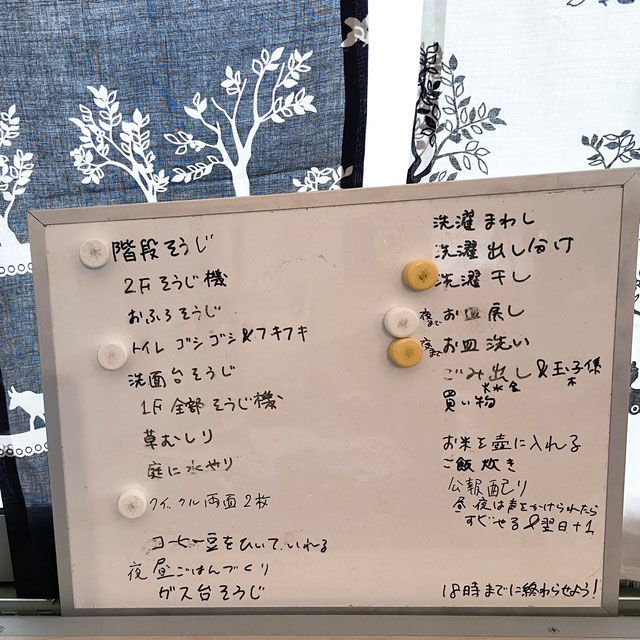 階段そうじ
2Fそうじ機
おふろそうじ
トイレ ゴシゴシ&フキフキ
洗面台そうじ
1F全部そうじ機
草むしり
庭に水やり
クイックル両面2枚
コーヒー豆をひいていれる
夜昼ごはんづくり
ガス台そうじ
洗濯まわし
洗濯出し分け
洗濯干し
夜まで お皿戻し
夜まで お皿洗い
ごみ出し&玉子係
火水金 木
買い物
お米を壺に入れる
ご飯炊き
公報配り
昼夜は声をかけられたら
すぐやる&翌日+1
18時までに終わらせよう!